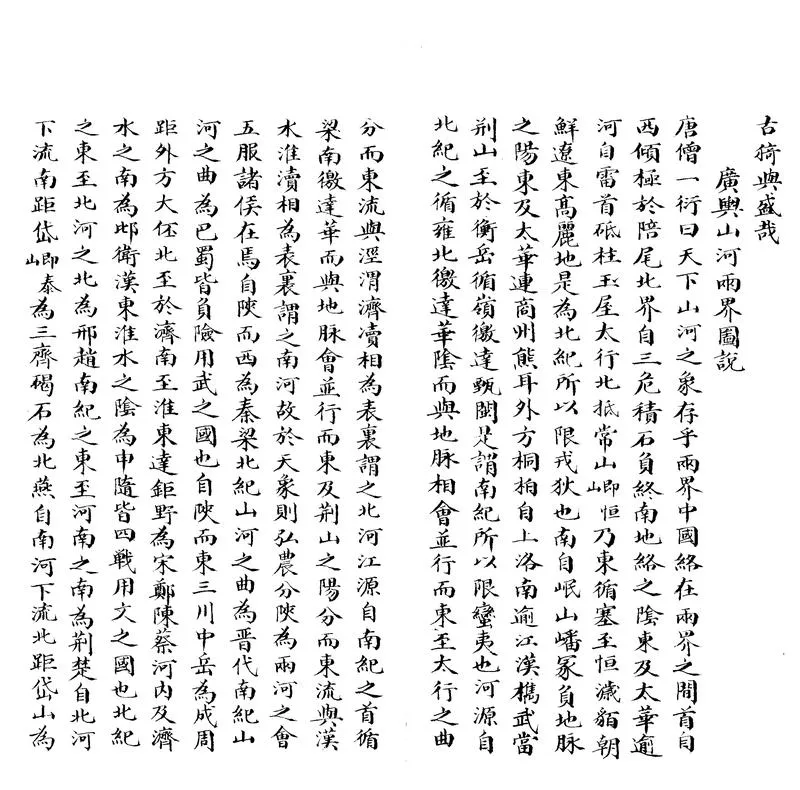 古猗與盛哉
廣輿山河兩界圖說
唐僧一行曰天下山河之象存乎兩界中國絡在兩界之間首自
西傾極於陪尾北界自三危積石負終南地絡之陰東及太華逾
河自雷首砥柱王屋太行北抵常山卽恒山乃東循塞至恒濊貊朝
鮮遼東高麗地是為北紀所以限戎狄也南自岷山嶓冢負地脉
之陽東及太華連商州熊耳外方桐柏自上洛南逾江漢檇武當
荆山至於衡岳循嶺徼達甄閩是謂南紀所以限蠻夷也河源自
北紀之循雍北徼達華陰而與地脉相會並行而東至太行之曲
分而東流與涇渭濟瀆相為表裏謂之北河江源自南紀之首循
梁南徼達華而與地脉會並行而東及荆山之陽分而東流與漢
水淮瀆相為表裏謂之南河故於天象則弘農分陝為兩河之會
五服諸侯在焉自陝而西為秦梁北紀山河之曲為晋代南紀山
河之曲為巴蜀皆負險用武之國也自陝而東三川中岳為成周
距外方大伾北至於濟南至淮東達鉅野為宋鄭陳蔡河内及濟
水之南為邶衛漢東淮水之陰為申隨皆四戰用文之國也北紀
之東至北河之北為邢趙南紀之東至河南之南為荆楚自北河
下流南距岱卽泰山為三齊碣石為北燕自南河下流北距岱山為